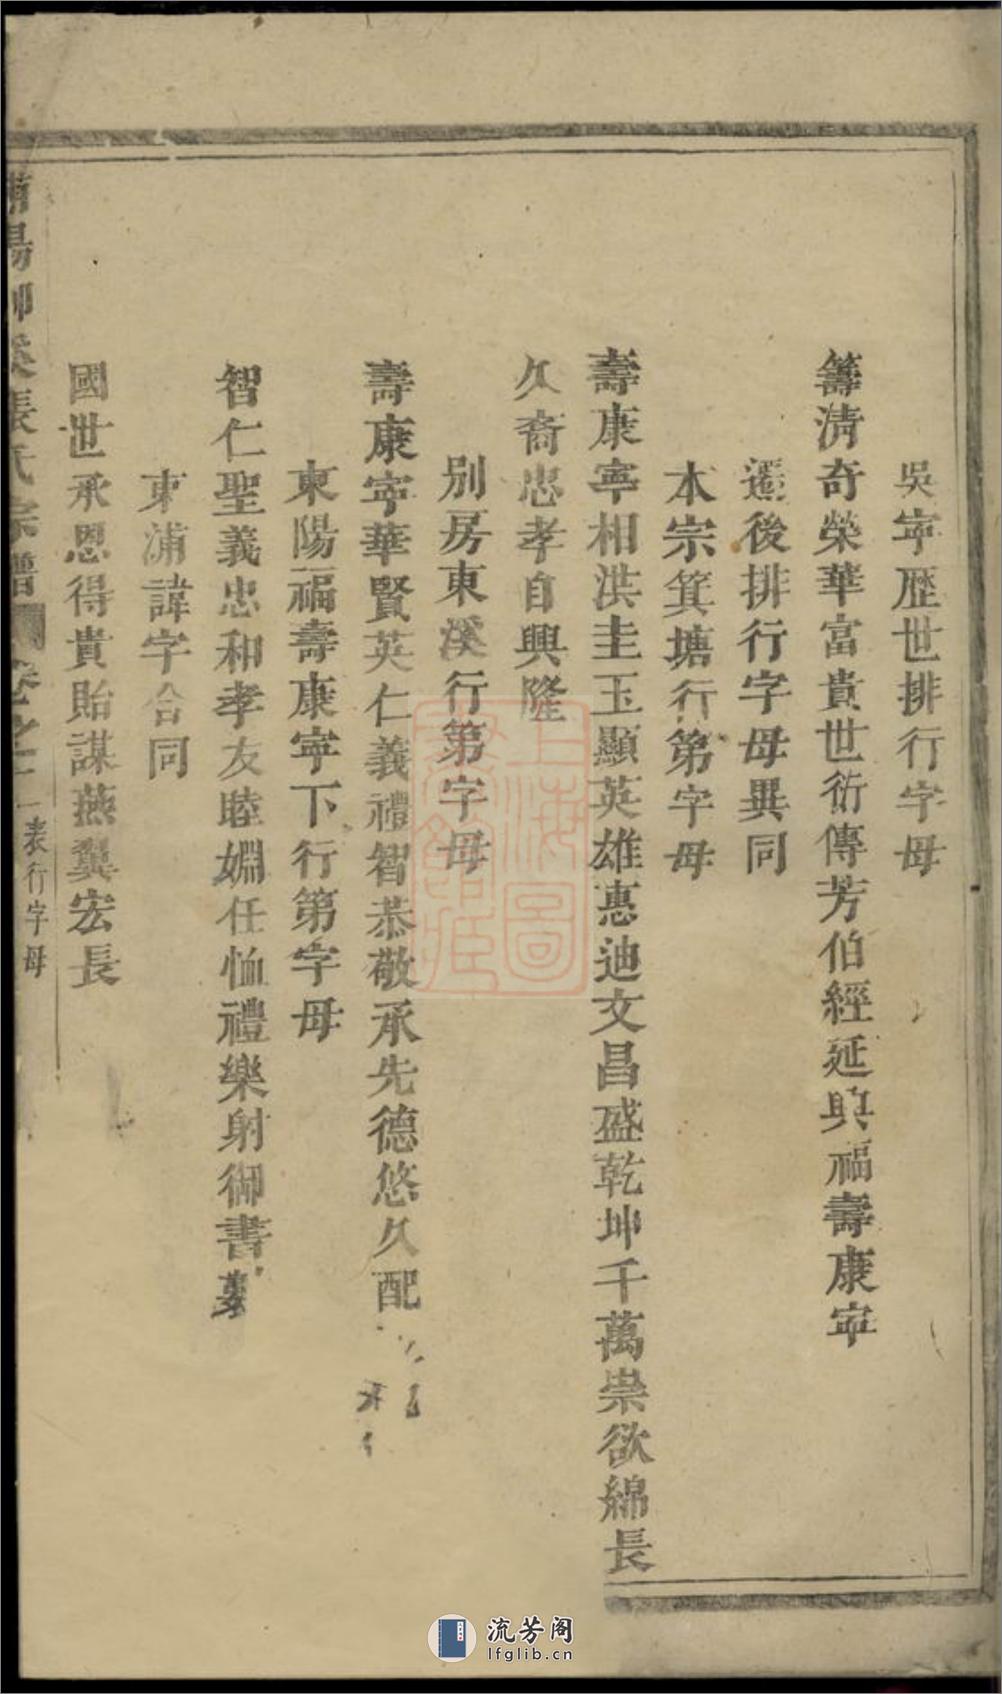 吳寧歷世排行字母
籌清奇榮華富貴世衍傳芳伯經延與福壽康寧
遷後排行字母異同
本宗箕塘行第字母
壽康寧相洪圭玉顯英雄惠迪文昌盛乾坤千萬崇欲綿長
久裔忠孝自興隆
別房東溪行第字母
壽康寧華賢英仁義禮智恭敬承先德悠久配
東陽福壽康寧下行第字母
智仁聖義忠和孝友睦婣任恤禮樂射御書
東浦諱字合同
國世承恩得貴貽謀燕翼宏長
張氏宗譜 卷之一 表行字母
上海圖書館藏
流芳阁
lfglib.cn